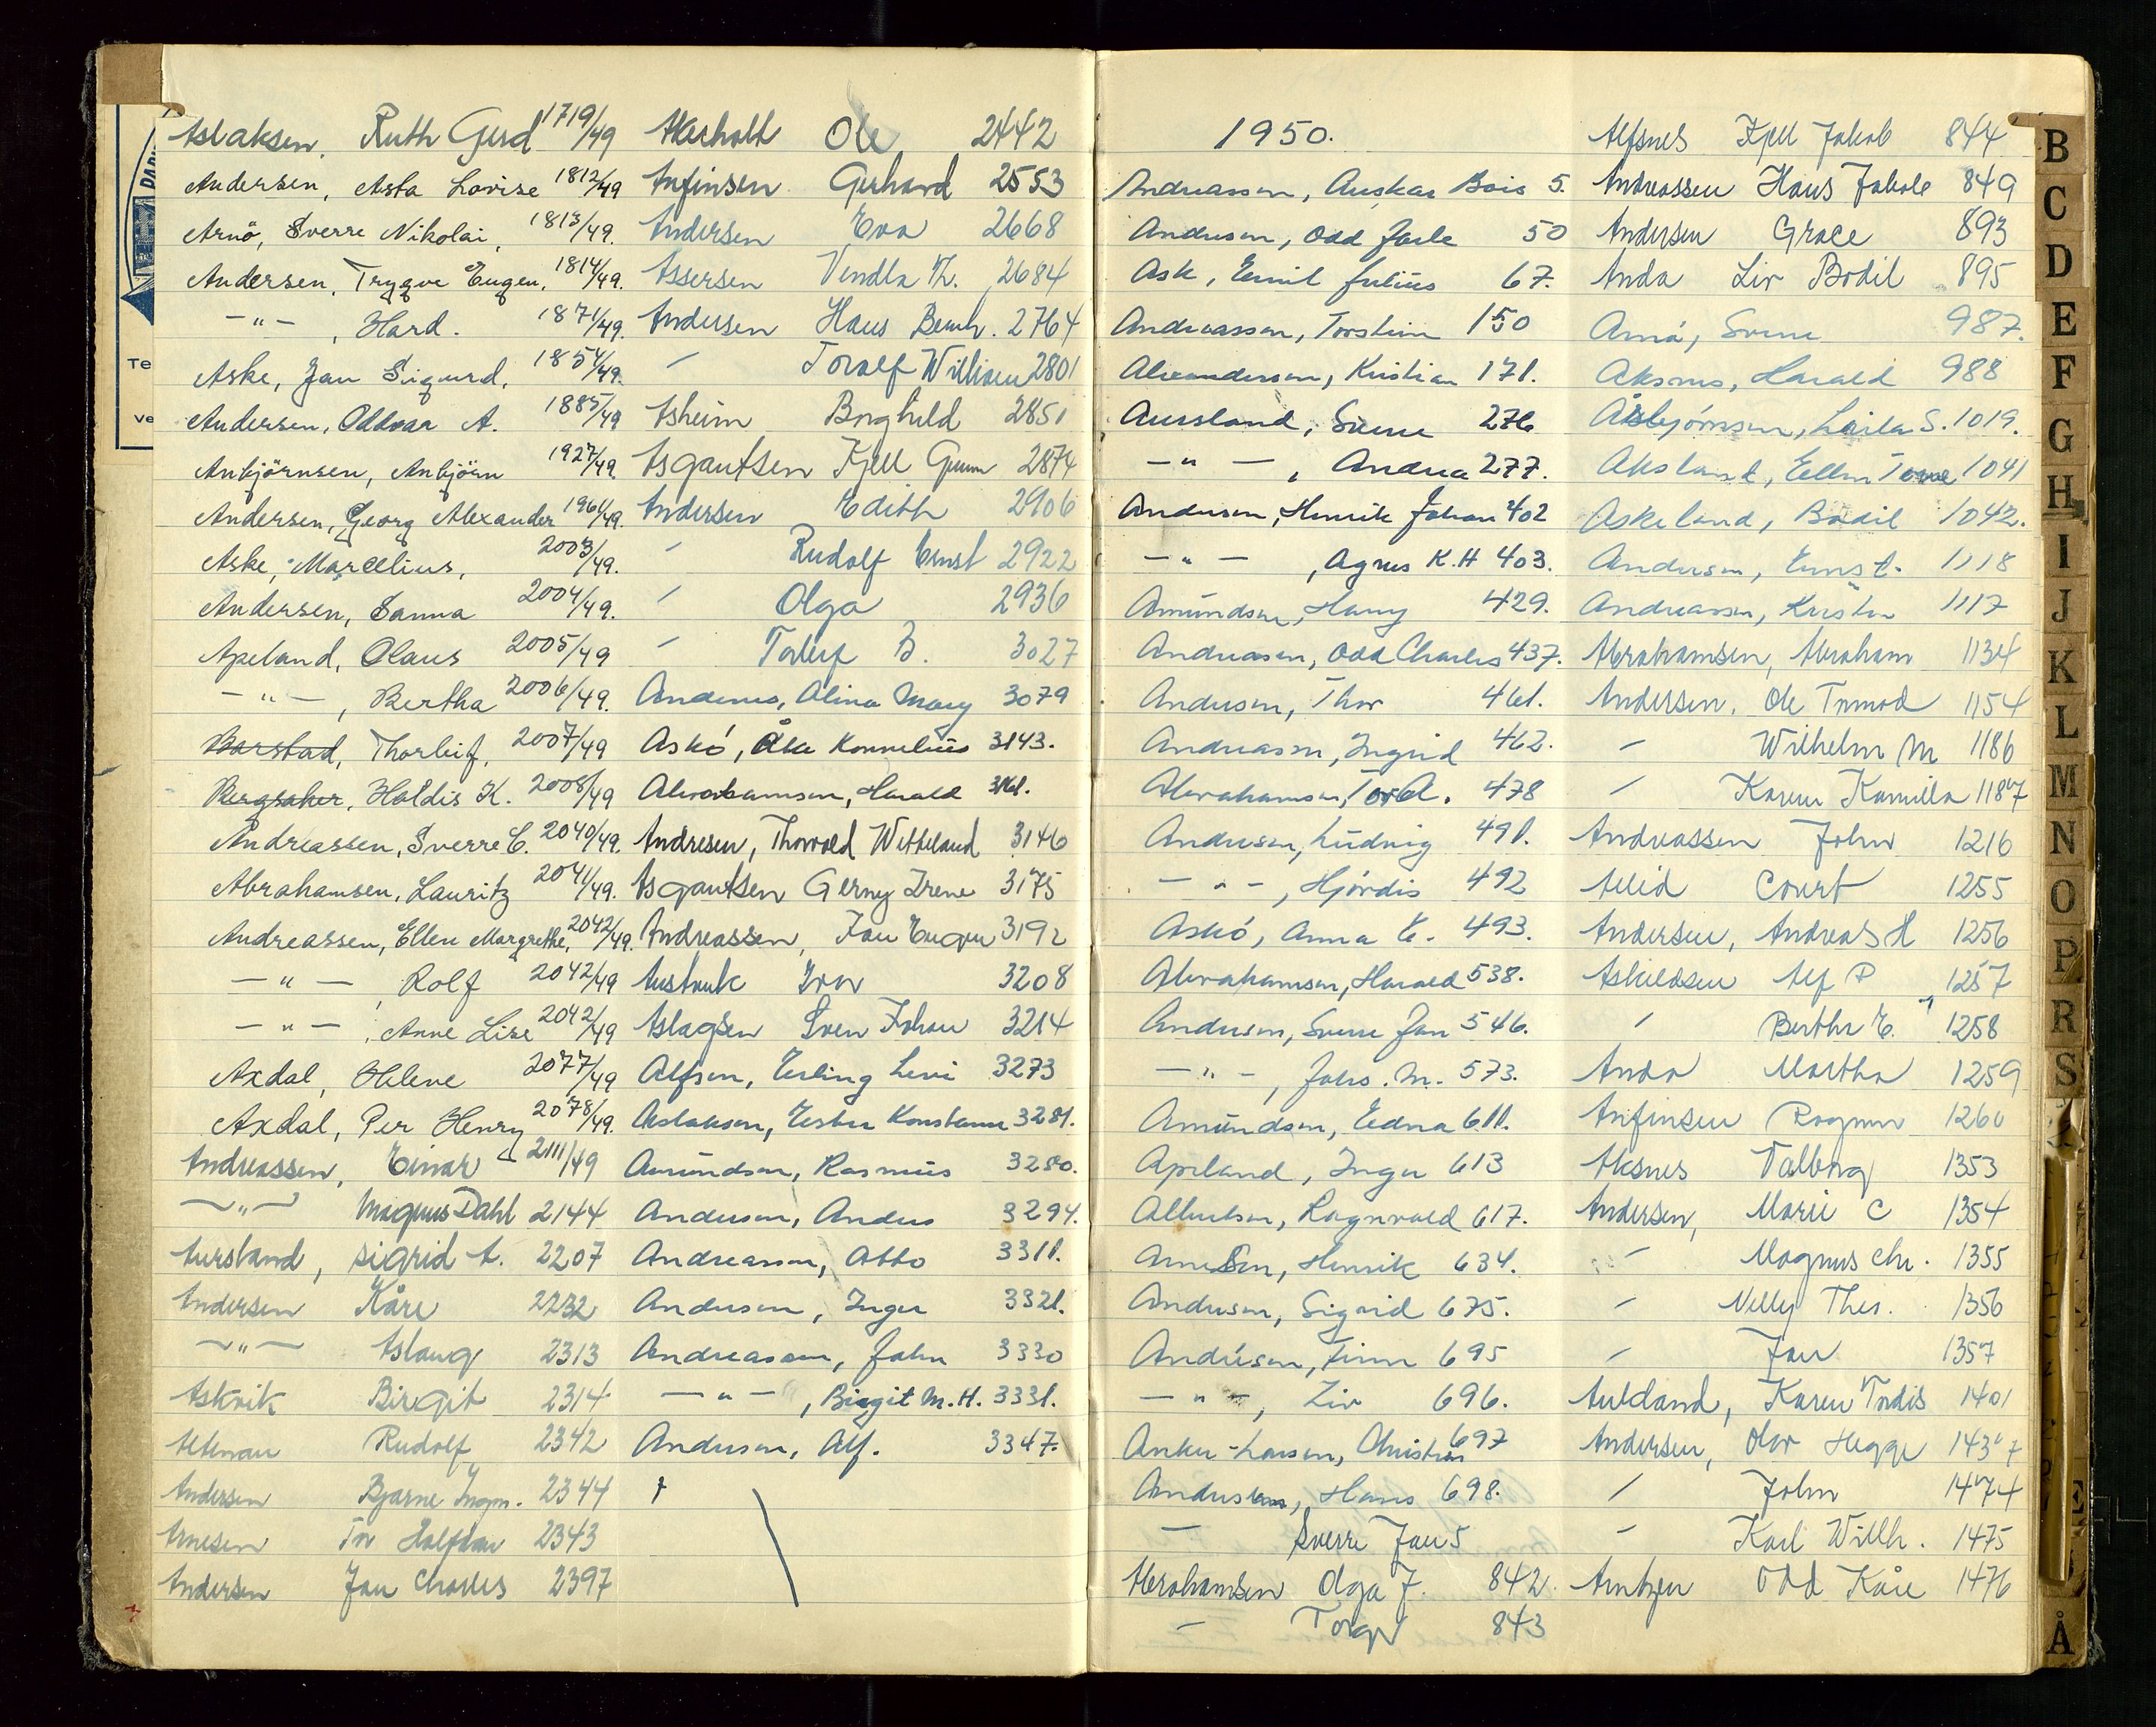 Aslaksen, Ruth Gerd 1719/49
Andersen, Asta Lovise 1812/49
Arnö, Sverre Nikolai, 1813/49.
Andersen, Trygve Eugen, 1814/49.
—"—, Hard. 1871/49.
Aske, Jan Sigurd, 1854/49.
Andersen, Oddvar A. 1885/49
Anbjörnsen, Anbjörn 1927/49.
Andersen, Georg Alexander 1961/49.
Aske, Marcelius, 2003/49.
Andersen, Sanna 2004/49.
Apeland, Olaus 2005/49
—"—, Bertha 2006/49.
Barstad, Thorleif, 2007/49
Bergsaker, Haldis K. 2008/49
Andreassen, Sverre C. 2040/49.
Abrahamsen, Lauritz 2041/49.
Andreassen, Ellen Margrethe, 2042/49.
—"—, Rolf 2042/49
—"—, Anne Lise 2042/49
Axdal, Helene 2077/49
Axdal, Per Henry 2078/49.
Andreassen, Einar - 2111/49
—"— Magnus Dahl 2144
Aursland, Sigrid A. 2207
Andersen Kåre 2232
—"— Aslaug 2313
Askvik Birgit 2314
Altman Rudolf 2342
Andersen Bjarne Ingm. 2344
Arnesen Tor Halfdan 2343
Andersen Jan Charles 2397
Akerholt Ole 2442
Anfinsen Gerhard 2553
Andersen Eva 2668
Assersen Vendla Th. 2684
Andersen Hans Bernh. 2764
" Toralf William 2801
Asheim Borghild 2851
Asgautsen Kjell Gunn 2874
Andersen Edith 2906
" Rudolf Ernst 2922
" Olga 2936
" Torleif B. 3027
Andenes, Alina Mary 3079
Askó, Åke Kornelius 3143.
Abrahamsen, Harald 3161.
Andresen, Thorvald Wetteland 3146
Asgautsen Gerny Irene 3175
Andreassen, Jan Eugen 3192
Austvik Ivar 3208
Aslagsen Sven Johan 3214
Alfsen, Erling Levi 3273
Aslaksen, Ester Konstanse 3281.
Amundsen, Rasmus 3280.
Andersen, Anders 3294.
Andreassen, Otto 3311.
Andersen, Inger 3321.
Andreassen, John 3330
—"—, Birgit M.H. 3331.
Andersen, Alf. 3347.
1950.
Andreassen, Anskar Bois 5.
Andersen, Odd Jarle 50
Ask, Emil Julius 67.
Andreassen, Torstein 150
Alexandersen, Kristian 171.
Aursland, Sverre 276
—"—, Andrea 277.
Andersen, Henrik Johan 402
—"—, Agnes K.H 403.
Amundsen, Harry 429.
Andreasen, Odd Charles 437.
Andersen, Thor 461.
Andreassen, Ingrid 462.
Abrahamsen, Tor A. 478
Andersen, Ludvig 491.
—"—, Hjördis 492
Askó, Anna E. 493.
Abrahamsen, Harald 538.
Andersen, Sverre Jan 546.
—"—, Johs. M. 573.
Amundsen, Edna 611.
Apeland, Inger 613
Albertsen, Ragnvald 617.
Arnesen, Henrik 634.
Andersen, Sigrid 675.
Andersen, Finn 695
—"—, Liv 696.
Anker-Larsen, Christian 697
Andersen, Hans 698.
— Sverre Jan 5
Abrahamsen Olga J. 842.
— Torger 843
Alfsnes Kjell Jakob 844
Andreassen Hans Jakob 849
Andersen Grace 893
Anda Liv Bodil 895
Arnó, Sverre 987.
Aksnes, Harald 988
Åsbjörnsen, Laila S. 1019.
Aksland, Ellen Tove 1041
Askeland, Bodil 1042.
Andersen, Ernst. 1118
Andreassen, Kristen 1117
Abrahamsen, Abraham 1134
Andersen, Ole Tormod 1154
" Wilhelm M 1186
" Karen Kamilla 1187
Andreassen John 1216
Allid Court 1255
Andersen, Andreas H 1256
Askildsen Alf P 1257
" Berthe E. 1258
Anda Martha 1259
Anfinsen Ragnar 1260
Aksnes Valborg 1353
Andersen, Marie C 1354
" Magnus Chr. 1355
" Nelly Thes. 1356
" Jan 1357
Aukland, Karen Tordis 1401
Andersen, Olav Hegge 1437
" John 1474
" Karl Willh. 1475
Arntzen Odd Kåre 1476
B
C
D
E
F
G
H
I
J
K
L
M
N
O
P
R
S
Å